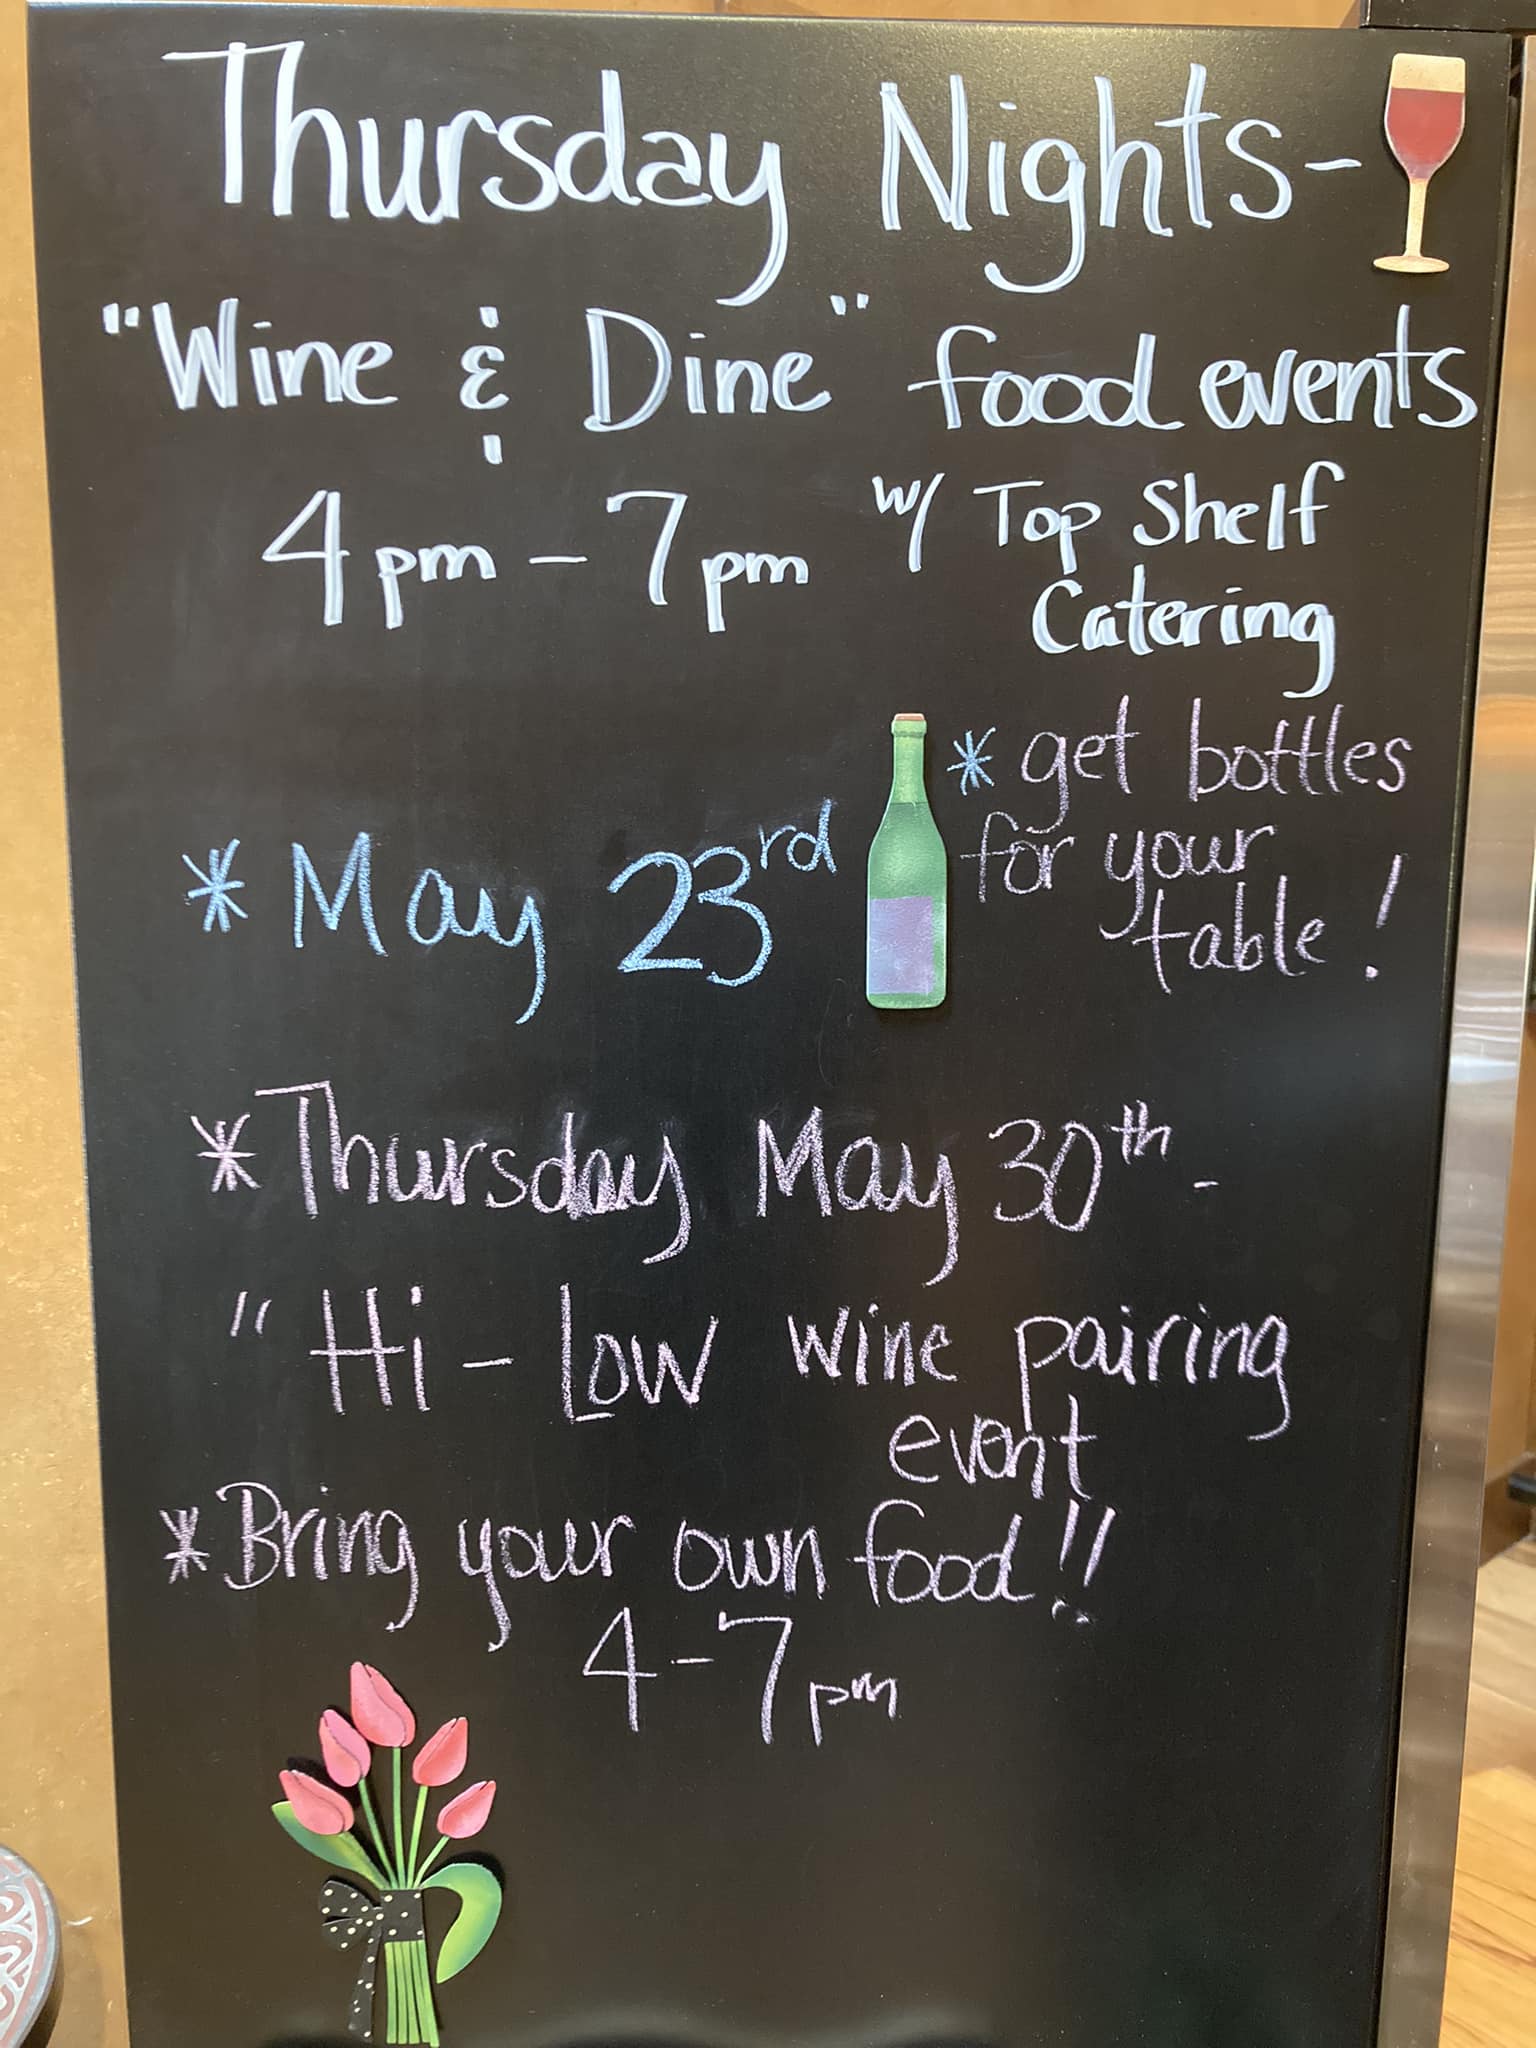 Thursday Nights-
"Wine & Dine" food events
4pm - 7pm w/ Top Shelf
Catering
* May 23rd
* get bottles
for your
table!
* Thursday May 30th -
"Hi - Low wine pairing
event
* Bring your own food!!
4-7pm